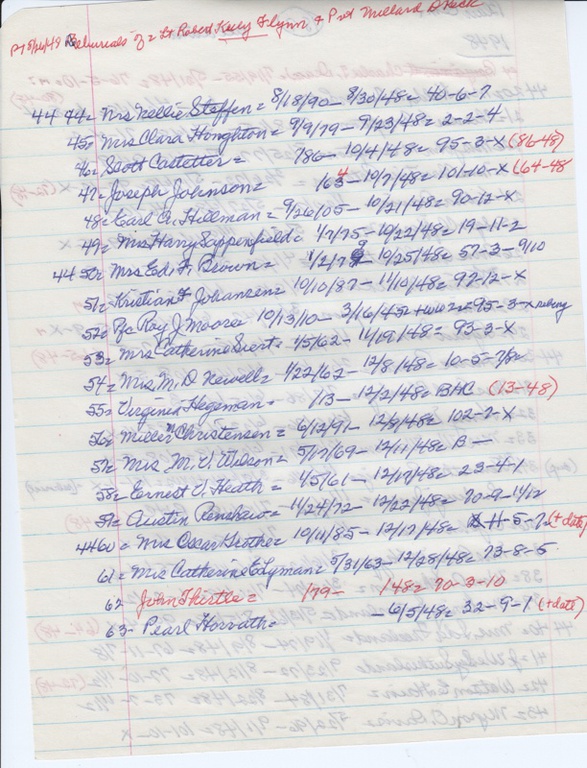 PS 5/26/49 Reburials of = Lt Robert Kelly Flynn + Pvt Millard D Keck
44 44= Mrs Nellie Steffen = 8/18/90 - 8/30/48 = 40-6-7
45= Mrs Clara Houghton = 9/9/79 - 9/23/48 = 2-2-4
46= Scott Castetter = 786 - 10/4/48 = 95-3-X (86-48)
47= Joseph Johnson = 1634 - 10/7/48 = 101-10-X (64-48
48= Carl A. Hillman = 9/26/05 - 10/21/48 = 90-12-X
49= Mrs Harry Sappenfield = 1/7/75 - 10/22/48 = 19-11-2
44 50= Mrs Ed. F. Brown = 1/2/79 - 10/25/48 = 57-3-9/10
51= Kristian F Johansen = 10/10/87 - 11/10/48 = 97-12-X
52= Pfc Ray J Moore 10/13/10 - 3/16/45 = WW2 = 95-3-X
53= Mrs Catherine Siert = 4/5/62 - 11/19/48 = 93-3-X
54= Mrs M. D Newell = 1/22/62 - 12/8/48 = 10-5-7/8
55= Virginia Hegeman = /13 - 12/2/48 = B+C (13-48)
56= Miller N Christensen = 6/12/91 - 12/8/48 = 102-7-X
57= Mrs M. V. Wilson = 5/17/69 - 12/11/48 = B -
58= Ernest V. Heath = 1/5/61 - 12/17/48 = 23-4-1
59= Austin Renshaw = 11/24/72 - 12/22/48 = 70-9-11/12
44 60= Mrs Oscar = 10/11/85 - 12/17/48 = 11-5-7 (+date)
61= Mrs Catherine E Lyman = 5/31/63 - 12/28/48 = 73-8-5
62- John Thistle = /79 - /48 = 70-3-10
63- Pearl Horvath = - 6/5/48 = 32-9-1 (+date)